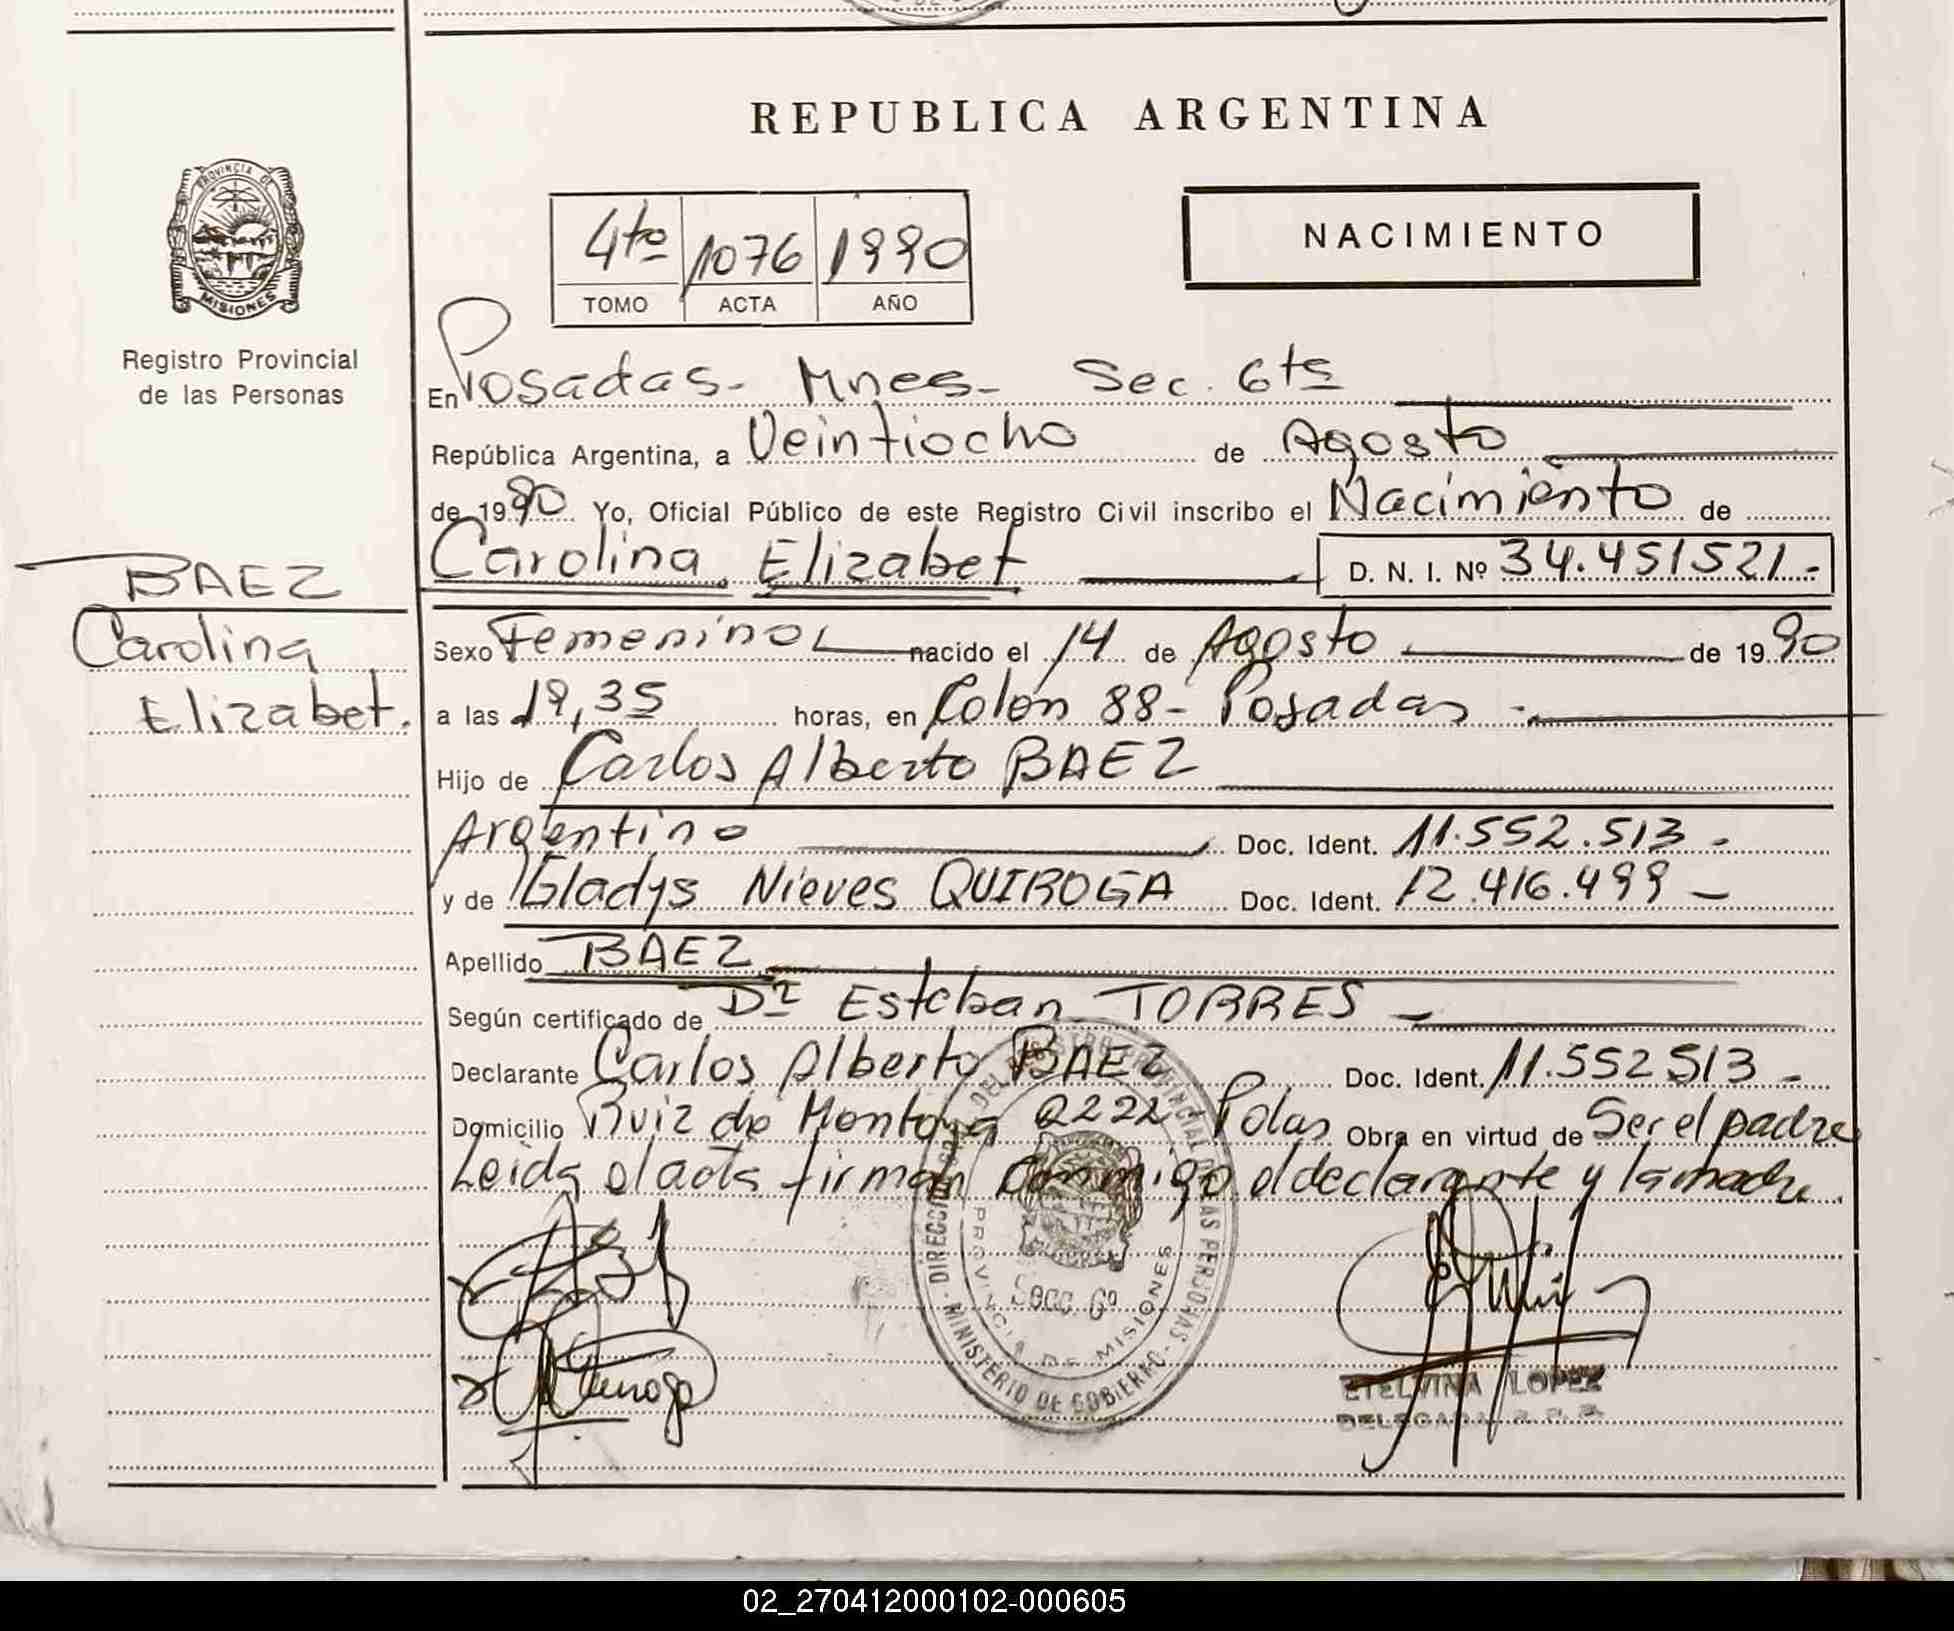 REPUBLICA ARGENTINA
PROVINCIA DE
MISIONES
Registro Provincial
de las Personas
NACIMIENTO
4to 1076 1990
TOMO ACTA AÑO
En Posadas- Mnes- Sec. 6ta
República Argentina, a Veintiocho de Agosto
de 1990 Yo, Oficial Público de este Registro Civil inscribo el Nacimiento de
Carolina Elizabet D. N. I. Nº 34.451521.-
BAEZ
Carolina
Elizabet.
Sexo Femenino nacido el 14 de Agosto de 1990
a las 19,35 horas, en Colón 88- Posadas -.
Hijo de Carlos Alberto BAEZ
Argentino Doc. Ident. 11.552.513-
y de Gladys Nieves QUIROGA Doc. Ident. 12.416.499-
Apellido BAEZ
Según certificado de Dr Esteban TORRES -
Declarante Carlos Alberto BAEZ Doc. Ident. 11.552513-
Domicilio Ruiz de Montoya 2222 Pdas Obra en virtud de Ser el padre
Leida el acta firman conmigo el declarante y la madre.
PROVINCIA DE MISIONES
MINISTERIO DE GOBIERNO
Secc. 6º
ETELVINA LOPEZ
DELEGADA R. P. P.
02_270412000102-000605